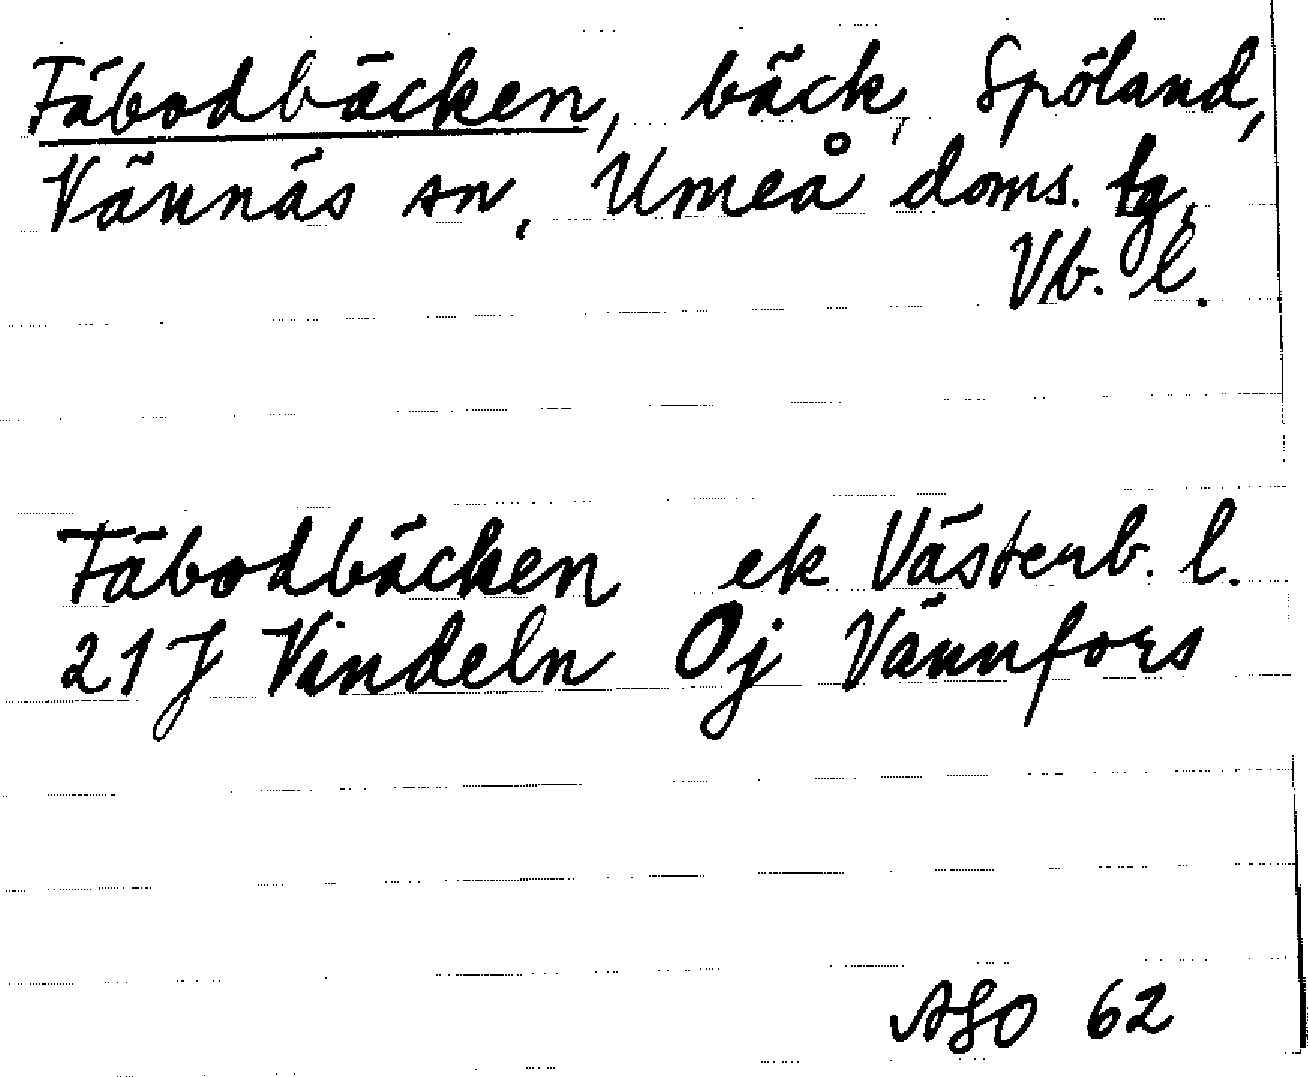 Fäbodbäcken, bäck, Spöland,
Vännäs sn, Umeå doms. tg,
Vb. l.
Fäbodbäcken ek Västerb. l.
21 J Vindeln Oj Vännfors
ASO 62